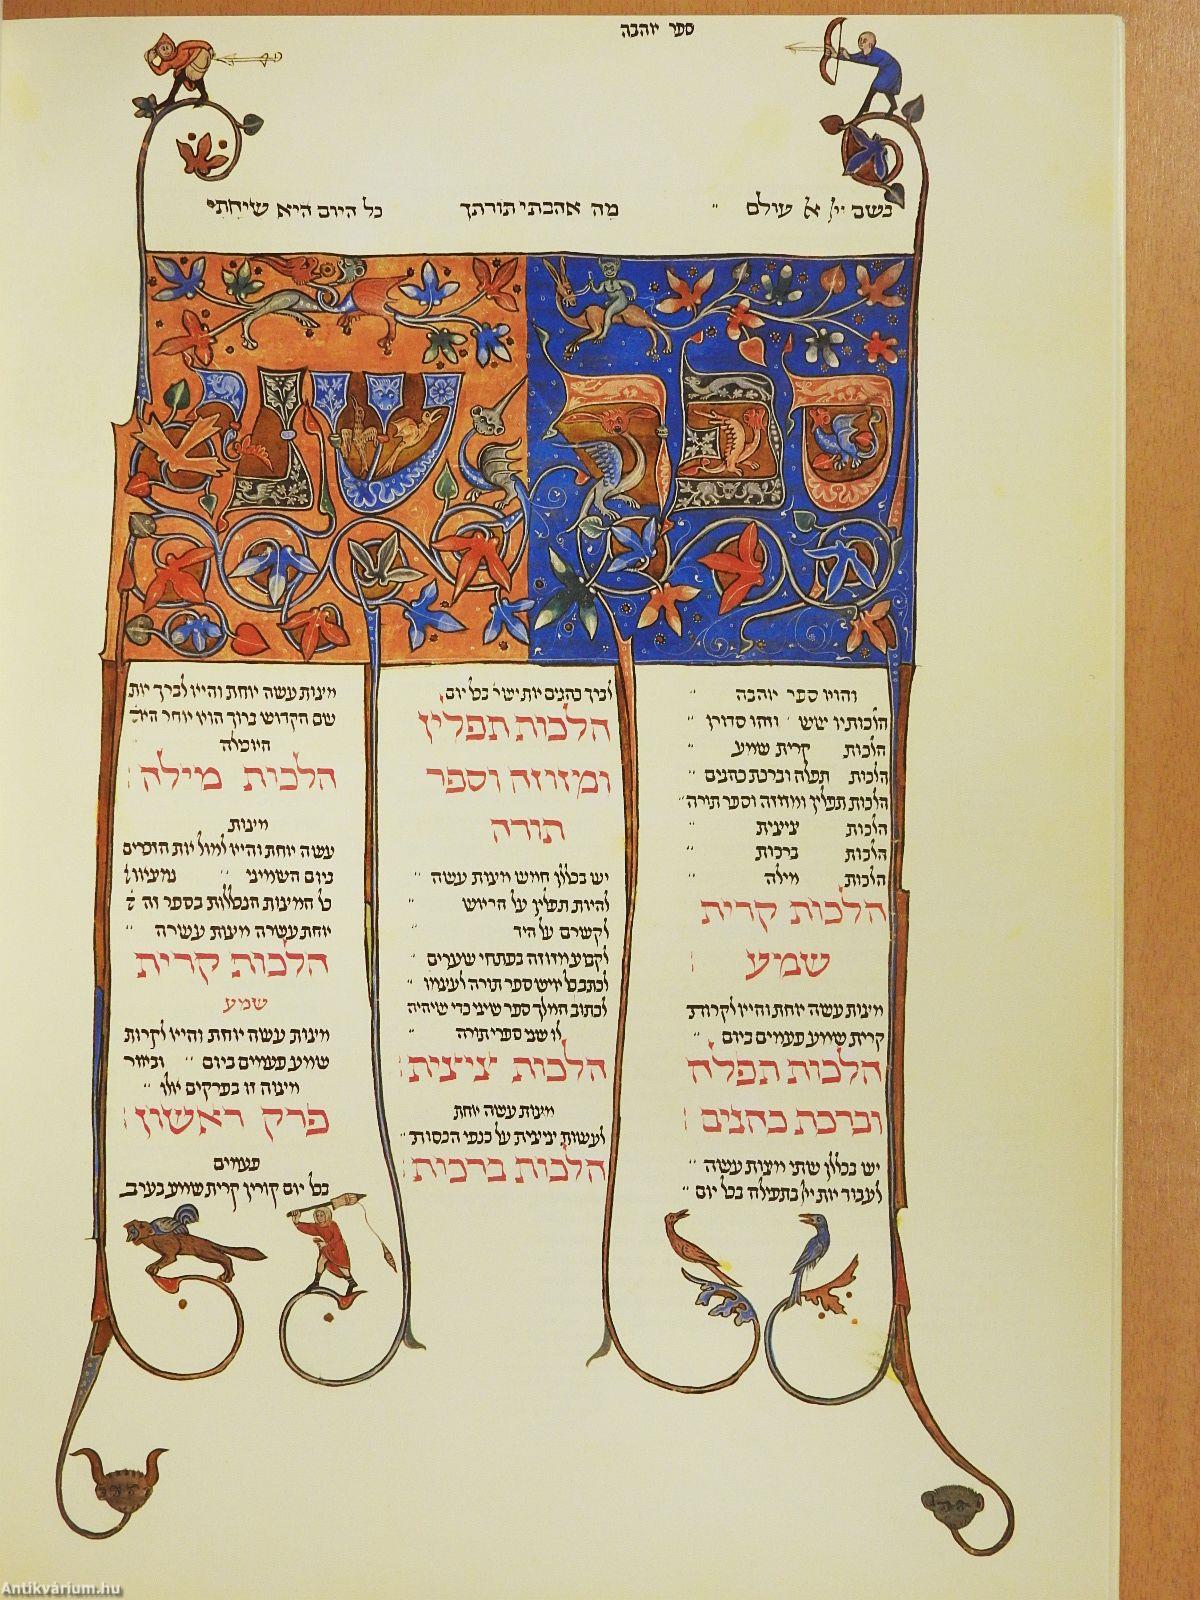 ספר אהבה
בשם יי אל עולם מה אהבתי תורתך כל היום היא שיחתי
ספר שני
והוא ספר אהבה
הלכותיו שש וזהו סדורן
הלכות קרית שמע
הלכות תפלה וברכת כהנים
הלכות תפלין ומזוזה וספר תורה
הלכות ציצית
הלכות ברכות
הלכות מילה
הלכות קרית
שמע
מצות עשה אחת והיא לקרות
קרית שמע פעמים ביום
הלכות תפלה
וברכת כהנים
יש בכללן שתי מצות עשה
לעבוד את יי בתפילה בכל יום
לברך כהנים את ישר' בכל יום
הלכות תפלין
ומזוזה וספר
תורה
יש בכללן חמש מצות עשה
להיות תפלין על הראש
לקשרם על היד
לקבע מזוזה בפתחי שערים
לכתב כל איש ספר תורה לעצמו
לכתוב המלך ספר שיני כדי שיהיה
לו שני ספרי תורה
הלכות ציצית
מצות עשה אחת
לעשות ציצית על כנפי הכסות
הלכות ברכות
מצות עשה אחת והיא לברך את
שם הקדוש ברוך הוא אחר
האכילה
הלכות מילה
מצות
עשה אחת והיא למול את הזכרים
ביום השמיני נמצאו
כל המצות הנכללות בספר זה
אחת עשרה מצות עשרה
הלכות קרית
שמע
מצות עשה אחת והיא לקרות
שמע פעמים ביום וביאור
מצוה זו בפרקים אלו
פרק ראשון
פעמים
בכל יום קורין קרית שמע בערב
Antikvárium.hu